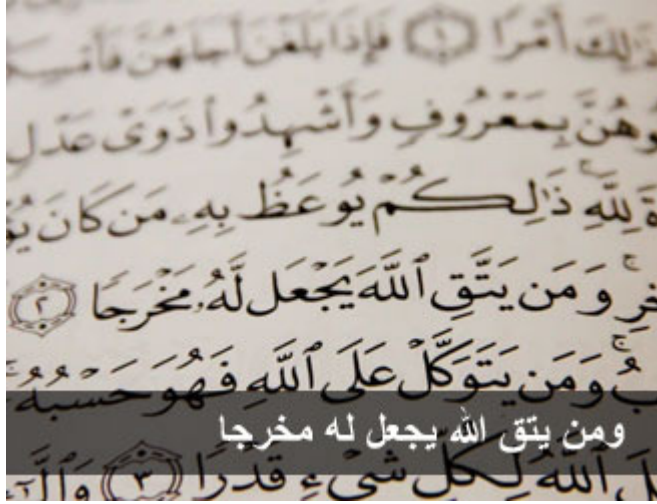 ذَٰلِكَ أَمْرًا ١ فَإِذَا بَلَغْنَ أَجَلَهُنَّ
بِمَعْرُوفٍ وَأَشْهِدُوا۟ ذَوَىْ عَدْلٍ
لِلَّهِ ذَٰلِكُمْ يُوعَظُ بِهِۦ مَن كَانَ
وَمَن يَتَّقِ ٱللَّهَ يَجْعَل لَّهُۥ مَخْرَجًا ٢
وَمَن يَتَوَكَّلْ عَلَى ٱللَّهِ فَهُوَ حَسْبُهُۥٓ
ومن يتق الله يجعل له مخرجا
ٱللَّهُ لِكُلِّ شَىْءٍ قَدْرًا ٣